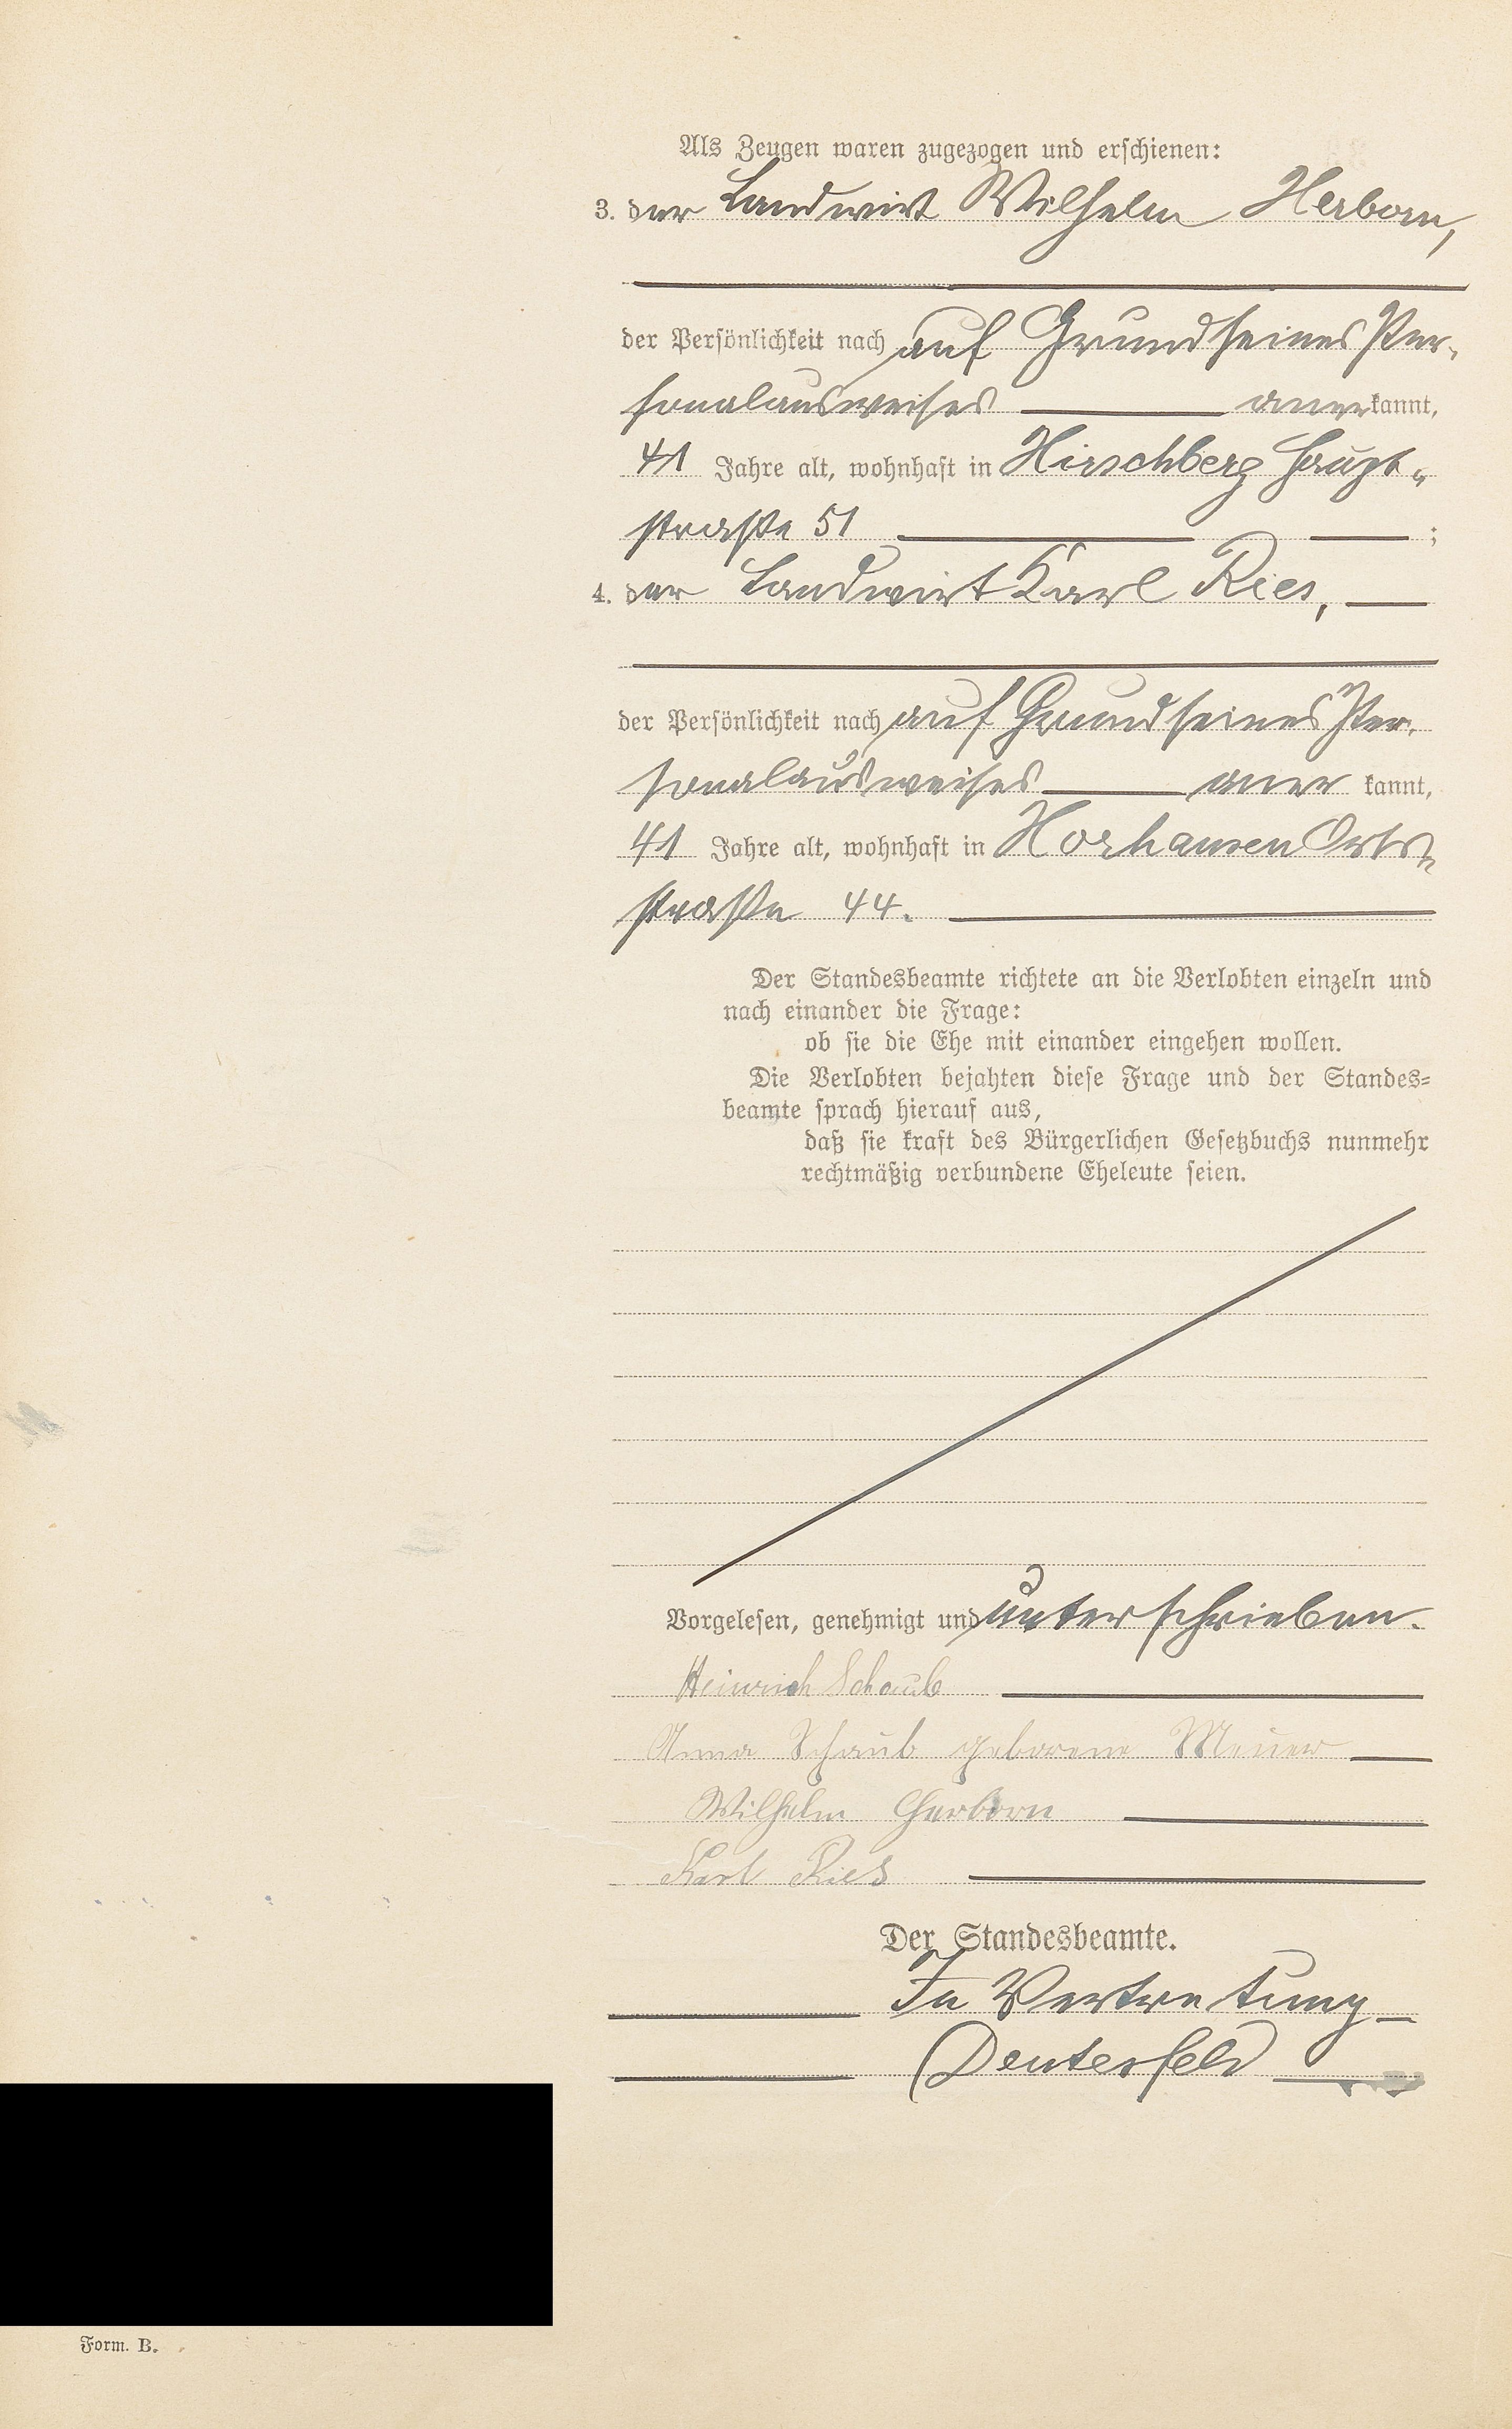 Als Zeugen waren zugezogen und erschienen:
3. der Landwirt Wilhelm Herborn,
der Persönlichkeit nach auf Grund seines Per-
sonalausweises anerkannt,
41 Jahre alt, wohnhaft in Hirschberg Haupt-
straße 51 ;
4. der Landwirt Karl Ries,
der Persönlichkeit nach auf Grund seines Per-
sonalausweises aner kannt,
41 Jahre alt, wohnhaft in Horhausen Orts-
straße 44.
Der Standesbeamte richtete an die Verlobten einzeln und
nach einander die Frage:
ob sie die Ehe mit einander eingehen wollen.
Die Verlobten bejahten diese Frage und der Standes-
beamte sprach hierauf aus,
daß sie kraft des Bürgerlichen Gesetzbuchs nunmehr
rechtmäßig verbundene Eheleute seien.
Vorgelesen, genehmigt und unterschrieben.
Heinrich Schaub
Anna Schaub geborene Meuer
Wilhelm Herborn
Karl Ries
Der Standesbeamte.
In Vertretung
Deutesfeld
Form. B.